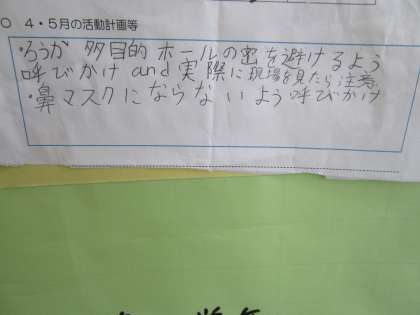 ○ 4・5月の活動計画等
・ろうか 多目的 ホールの密を避けるよう
呼びかけ and 実際に現場を見たら注意
・鼻マスクにならないよう呼びかけ